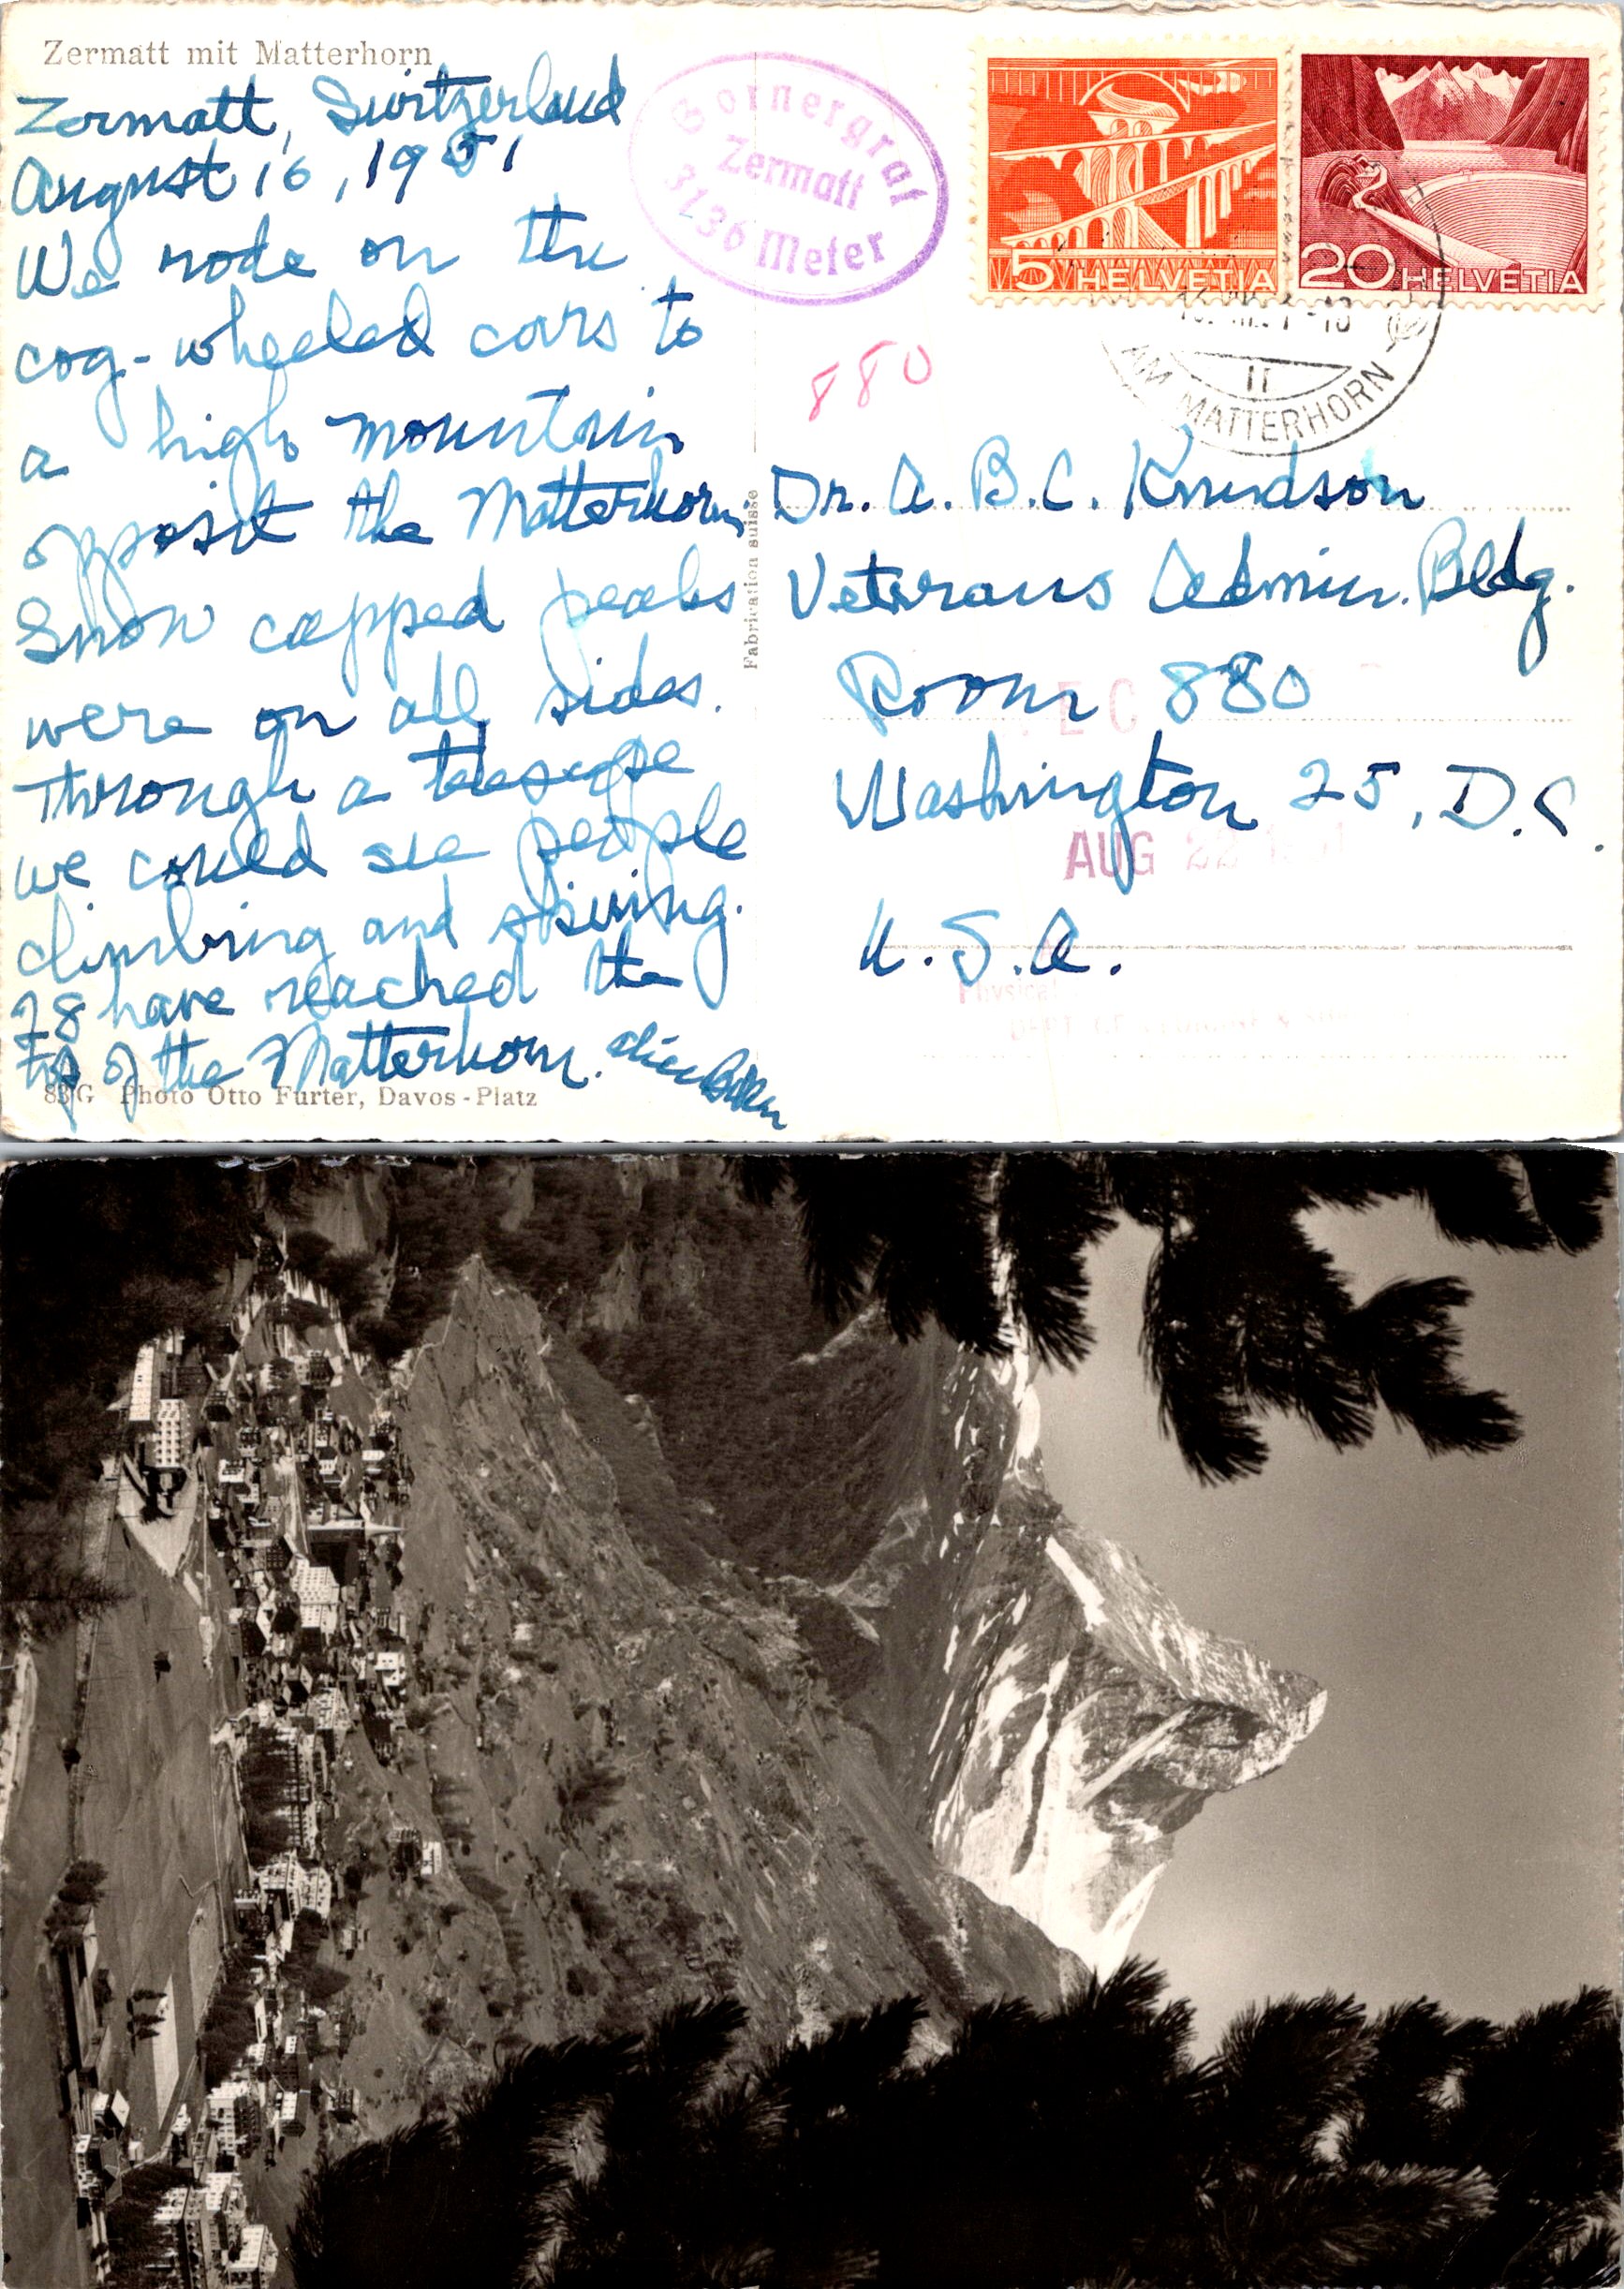 Zermatt mit Matterhorn
Zermatt, Switzerland
August 16, 1951
We rode on the
cog-wheeled cars to
a high mountain
opposit the Matterhorn.
Snow capped peaks
were on all sides.
Through a telescope
we could see people
climbing and skiing.
78 have reached the
top of the Matterhorn.
83G Photo Otto Furter, Davos-Platz
Fabrication suisse
Gornergrat
Zermatt
3136 Meter
5 HELVETIA
20 HELVETIA
AM MATTERHORN
II
880
Dr. A. B. C. Knudson
Veterans Admin. Bldg.
Room 880
Washington 25, D.C.
U.S.A.
AUG 22
Physical